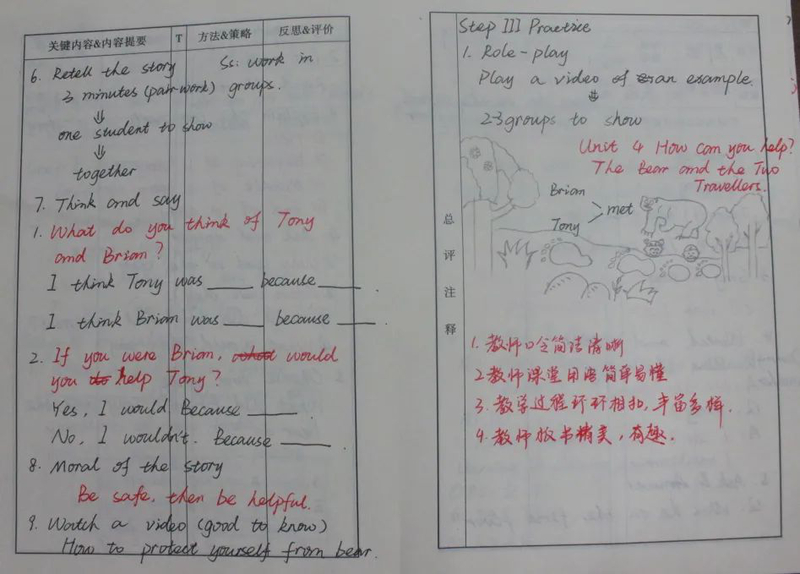 关键内容&内容提要 T 方法&策略 反思&评价
6. Retell the story Ss: work in
3 minutes (pair-work) groups.
⇓
one student to show
⇓
together
7. Think and say
1. What do you think of Tony
and Brian?
I think Tony was ____ because ____
I think Brian was ____ because ____
2. If you were Brian, would
you help Tony?
Yes, I would Because ____
No, I wouldn't. Because ____
8. Moral of the story
Be safe, then be helpful.
9. Watch a video (good to know)
How to protect yourself from bear.
总评注释
Step III Practice
1. Role-play
Play a video of an example.
⇓
2-3 groups to show
Unit 4 How can you help?
The Bear and the Two
Travellers.
Brian
met
Tony
1. 教师口令简洁清晰
2 教师课堂用语简单易懂
3. 教学过程环环相扣,丰富多样.
4. 教师板书精美,有趣.